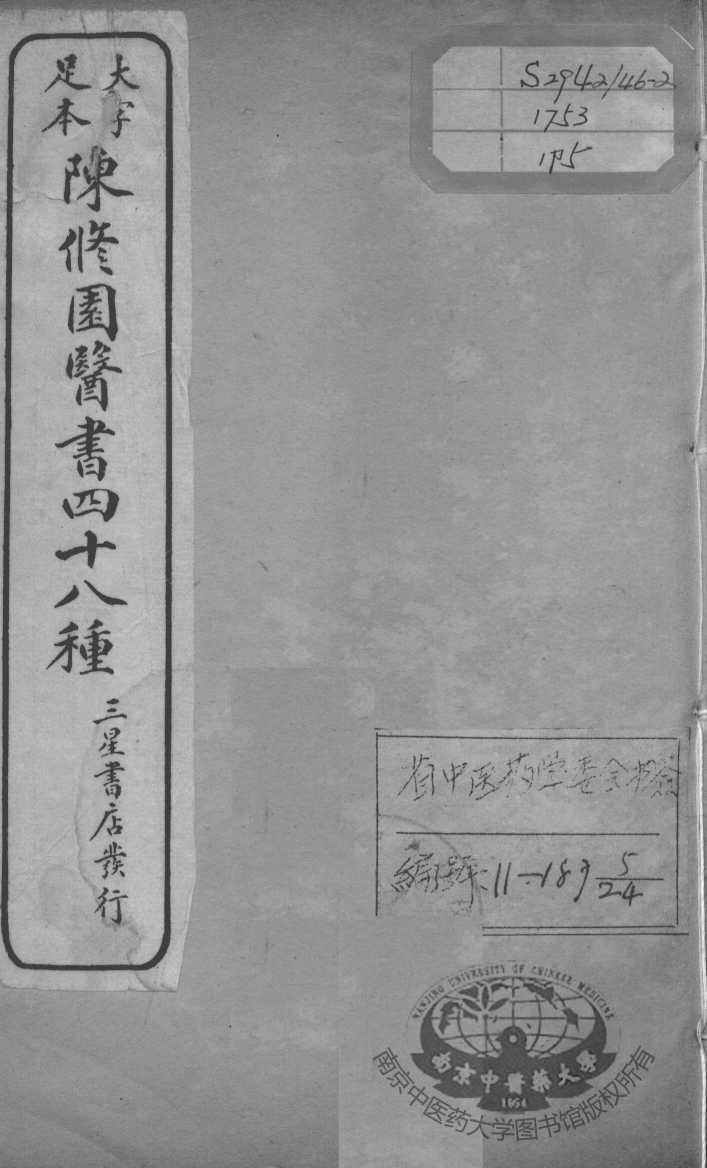 大字
足本
陳修園醫書四十八種
三星書店發行
S2942/46-2
1753
1P5
省中医药学委会
編號：11-189 5/24
NANJING UNIVERSITY OF CHINESE MEDICINE
南京中醫藥大學
1954
南京中医药大学图书馆版权所有